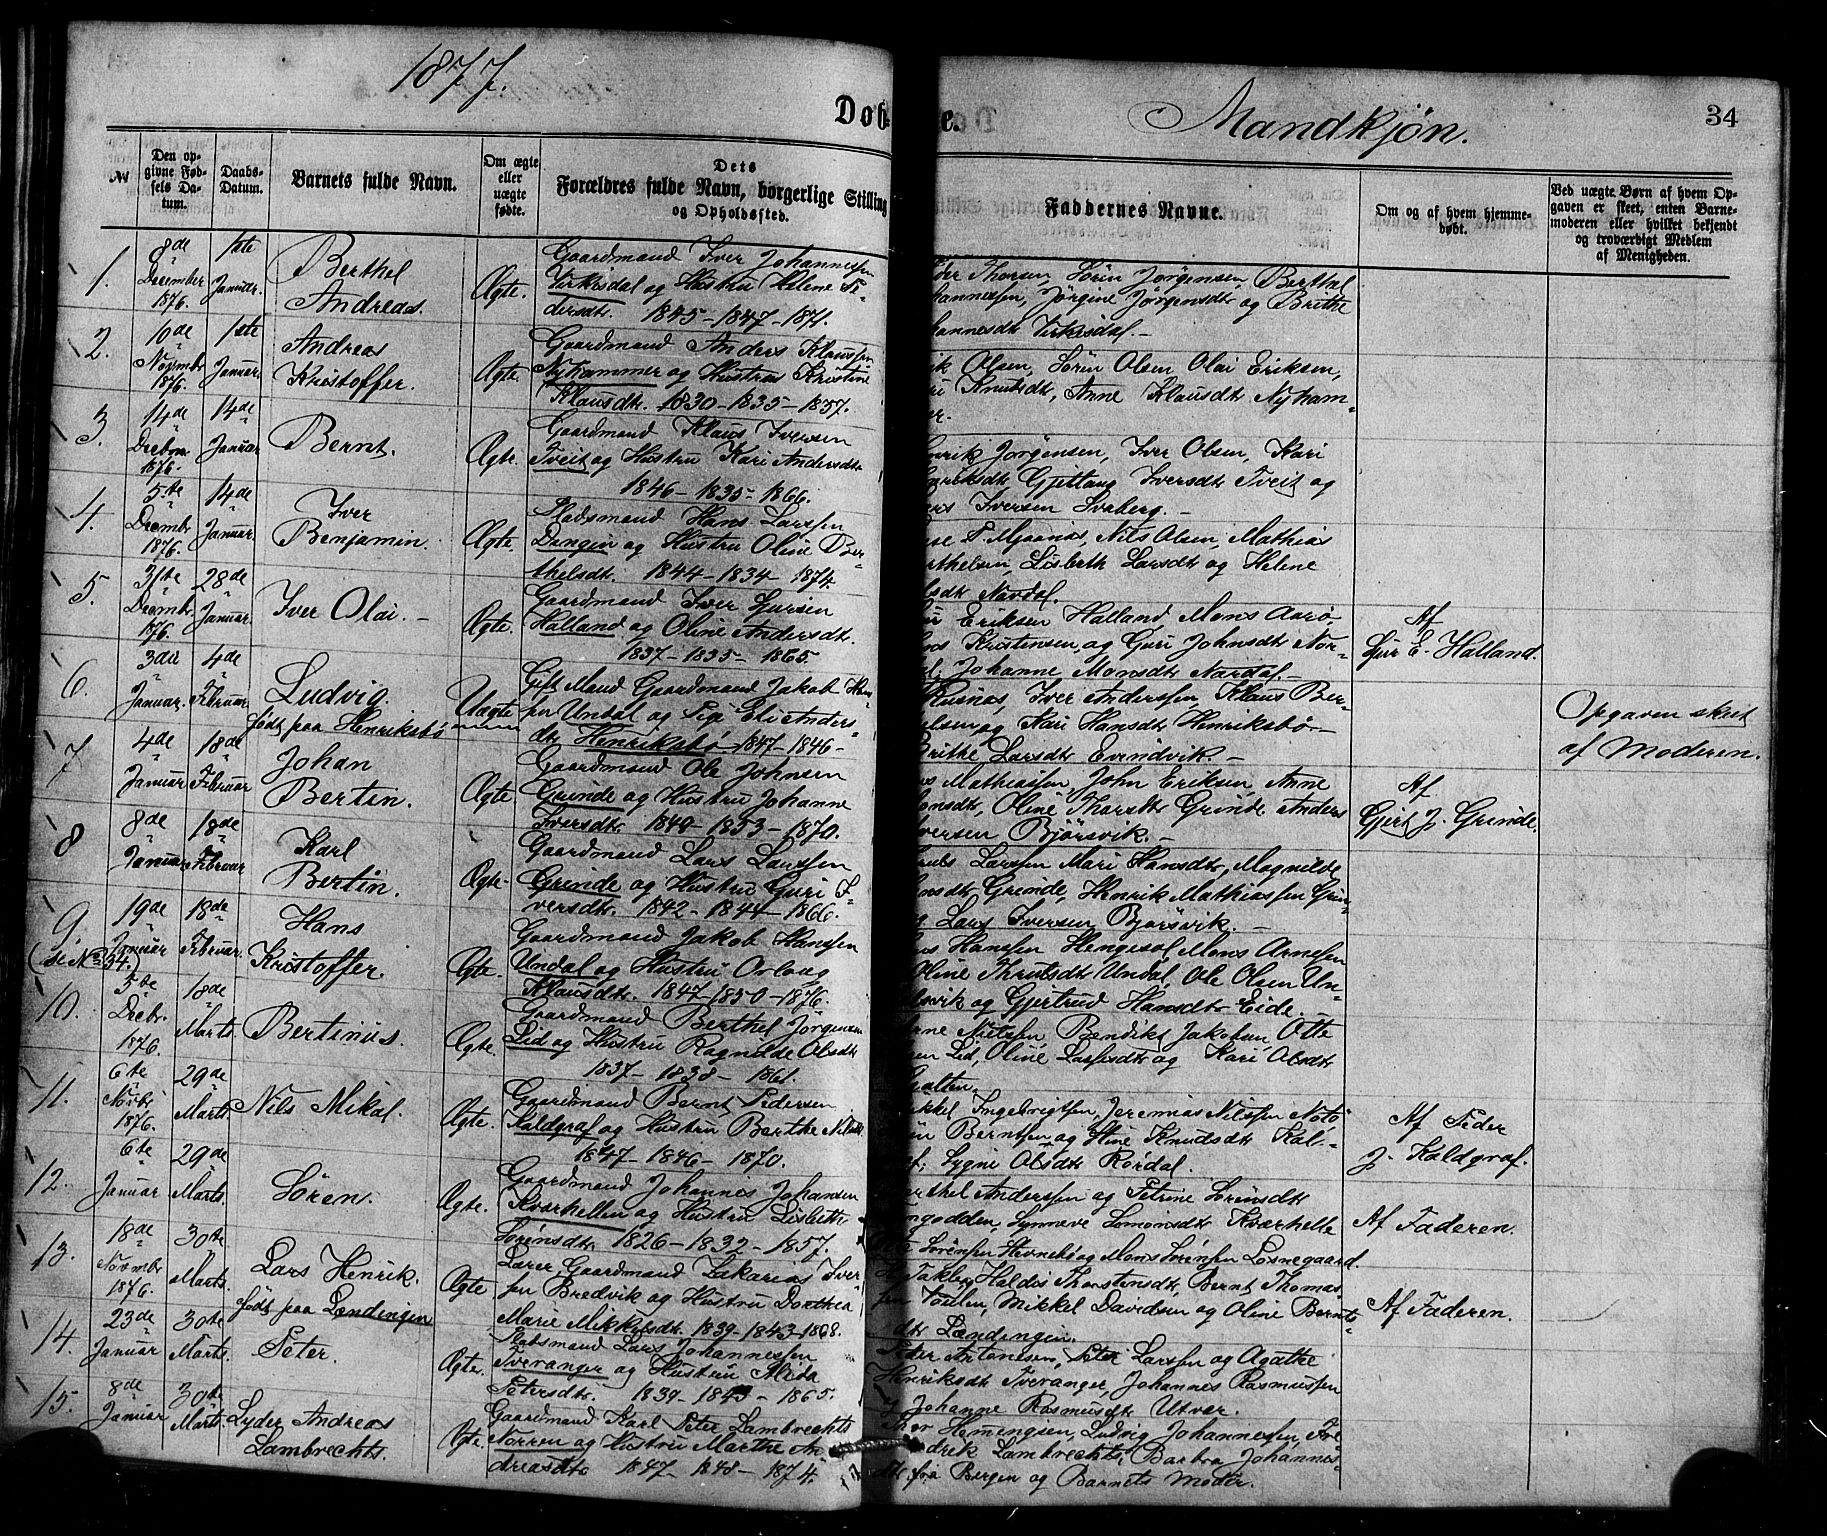 1877.
Dob-
e.
Mandkjøn.
34
№
Den opgivne Fødsels Datum.
Daabs-Datum.
Barnets fulde Navn.
Om ægte eller uægte fødte.
Dets Forældres fulde Navn, borgerlige Stilling og Opholdssted.
Faddernes Navne.
Om og af hvem hjemmedøbt.
Ved uægte Børn af hvem Opgaven er skeet, enten Barnemoderen eller hvilket bekjendt og troværdigt Medlem af Menigheden.
1.
8de December 1876.
1ste Januar.
Berthel Andreas.
Ægte.
Gaardmand Iver Johannessen
Virkesdal og Hustru Helene Pe-
dersdt. 1845-1847-1871.
Thorsen, Sørin Jørgensen, Berthel
hannessen, Jørgine Jørgensdt og Brithe
hannesdt Virkesdal.-
2.
10de Novmbr 1876.
1ste Januar.
Andreas Kristoffer.
Ægte.
Gaardmand Anders Klaussen
Nykammer og Hustru Kristine
Klausdt. 1830-1835-1857.
rik Olsen, Sørin Olsen Olai Eriksen,
Knutsdt, Anne Klausdt Nyham-
er.
3.
14de Decbm 1876.
14de Januar
Bernt.
Ægte.
Gaardmand Klaus Iversen
Tveit og Hustru Kari Andersdt.
1846-1835-1866.
nrik Jørgensen, Iver Olsen, Kari
nriksdt Gjettang Iversdt Tveit og
ers Iversen Svaberg.-
4.
5te Decmbr 1876.
14de Januar.
Iver Benjamin.
Ægte.
Pladsmand Hans Larssen
Dangen og Hustru Oline Ber-
thelsdt. 1844-1834-1874.
Nils Olsen, Mathias
rthelsen, Lisbeth Larsdt og Helene
lsdt Nardal.
5.
31te Decmbr 1876.
28de Januar.
Iver Olai.-
Ægte.
Gaardmand Iver Gursen
Halland og Oline Andersdt.
1837-1835-1865.
Eriksen Halland, Mons Aarø,
Kristensen og Guri Johnsdt Nor-
Johanne Monsdt Nardal.-
Af
E. Halland.
6.
3die Januar.
4de Februar
Ludvig.
født paa Henriksbø
Uægte
Gift Mand Gaardmand Jakob Han-
sen Undal og Pige Eli Anders-
dt Henriksbø 1847-1846-
Rusnæs, Iver Anderssen, Klaus Ber-
elsen og Kari Hansdt Henriksbø.-
Brithe Larsdt Evindvik.-
Opgaven skeet
af Moderen.
7
4de Januar
18de Februar
Johan Bertin.
Ægte
Gaardmand Ole Johnsen
Grinde og Hustru Johanne
Iversdt. 1849-1853-1870.
Mathiassen, John Eriksen, Anne
onsdt, Oline Grinde, Anders
versen Bjørsvik.-
Af
Gjert J. Grinde.
8
8de Januar
18de Februar
Karl Bertin.
Ægte.
Gaardmand Lars Larssen
Grinde og Hustru Guri I-
versdt. 1842-1844-1866.
Larssen Mari Hansdt, Magnilde
nsdt Grinde, Henrik Mathiassen Grin-
Lars Iversen Bjørsvik.-
9.
(se No 34.)
19de Januar
18de Februar.
Hans Kristoffer.
Ægte.
Gaardmand Jakob Hanssen
Undal og Hustru Orlaug
Klausdt. 1847-1850-1876.
Hanssen Hengesøl, Mons Arnesen
Oline Knutsdt Undal, Ole Olsen Un-
og Gjertrud Hansdt Eide.-
10.
5te Decbr. 1876.
18de Marts.
Bertinus.
Ægte.
Gaardmand Berthel Jørgensen
Lid og Hustru Ragnilde Olsdt
1837-1838-1861.
Nielsen, Bendiks Jakobsen Otte
sen Lid, Oline Lassesdt og Kari Olsdt
Galten.
11.
6te Novbr. 1876.
29de Marts.
Nils Mikal.
Ægte.
Gaardmand Bernt Pedersen
Kaldgraf og Hustru Berthe Nilsdt
1847-1846-1870.
kkel Ingebrigtsen, Jeremias Nilssen Notø
Berntsen og Stine Knudsdt Kal-
f; Sygni Olsdt Rørdal.
Af Peder
J. Kaldgraf.
12.
6te Januar
29de Marts.
Søren.
Ægte.
Gaardmand Johannes Johansen
Kværhellen og Hustru Lisbeth
Sørensdt. 1826-1832-1857.
Berthel Anderssen og Petrine Sørinsdt
Synneve Simonsdt Kværhelle
Sørensen og Mons Sørensen Losnegaard.
Af Faderen.
13.
18de Novmbr 1876.
30te Marts.
Lars Henrik.
født paa Lendingen
Ægte
Lærer Gaardmand Zakarias Iver-
sen Bredvik og Hustru Dorthea
Marie Mikkelsdt. 1839-1843-1868.
Takle, Haldis Thorstensdt, Bernt Thomas-
sen Mikkel Davidsen og Oline Bernts-
dt Lændingen.
Af Faderen.
14.
23de Januar
30te Marts.
Peter.
Ægte.
Pladsmand Lars Johannessen
Tveranger og Hustru Alida
Petersdt. 1839-1843-1865.
Peder Antonesen, Peter Larssen og Agathe
Henriksdt Tveranger, Johannes Rasmussen
Johanne Rasmusdt Utvær.
15.
8de Januar
30te Marts.
Lyder Andreas Lambrechts.
Ægte.
Gaardmand Karl Peter Lambrechts
Norren og Hustru Marthe An-
dreasdt. 1847-1848-1874.
Hemingsen, Ludvig Johannessen, Fre-
drik Lambrechts, Barbra Johannes-
dt. fra Bergen og Barnets Moder.